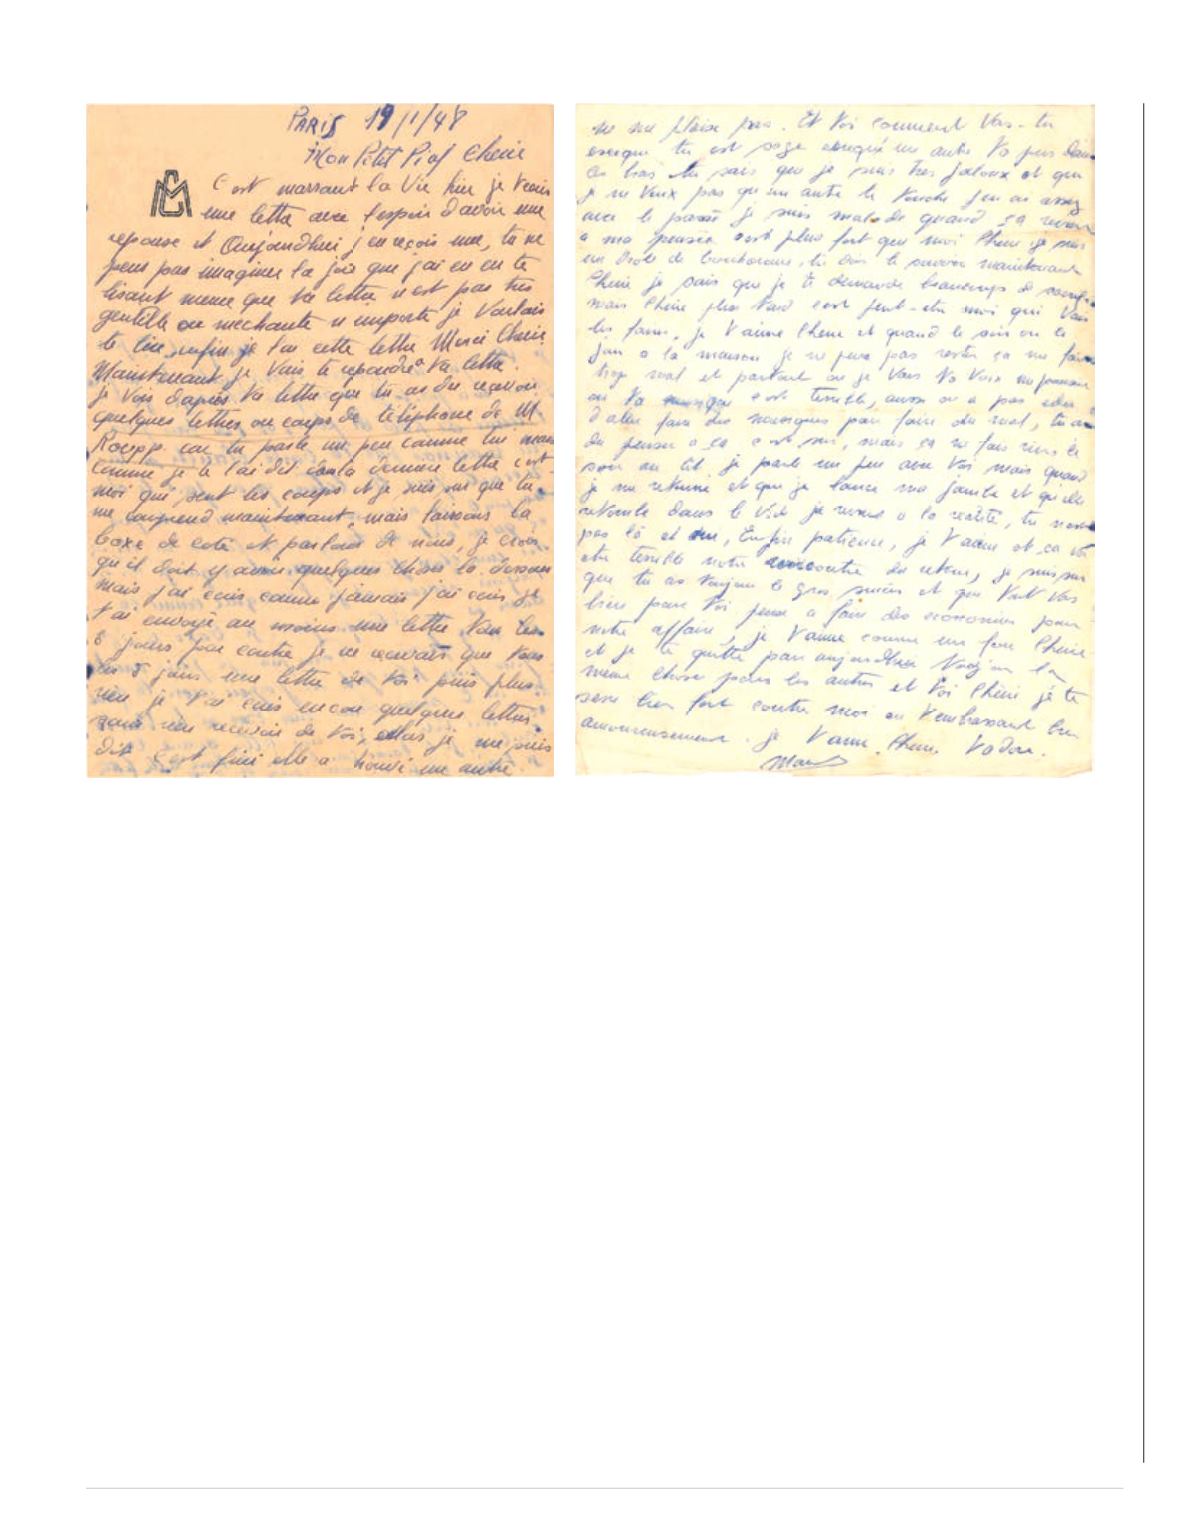 PARIS 19/1/48
Mon Petit Piaf Cherie
C est marrant la Vie hier je
une lettre avec l espoir d avoir une
reponse et Aujourdhui j en reçois une, tu ne
peus pas imaginer la joie que j ai eu en te
lisant meme que ta lettre n est pas très
gentille ou mechante n importe je Voulais
te lire, enfin je l ai cette lettre Merci Cherie
Maintenant je Vais te repondre a ta lettre.
je Vois d apres ta lettre que tu as du recevoir
quelques lettres ou coups de téléphone de M
car tu parle un peu comme lui mais
comme je te l ai dit dans la derniere lettre c est
moi qui sent les coups et je suis sur que tu
me comprend maintenant, mais laissons la
boxe de coté et parlons de nous, je crois
qu il doit y avoir quelques choses la dessous
mais j ai ecris comme jamais j ai ecris je
t ai envoyé au moins une lettre tous les
jours par contre je ne recevais que tous
les jours une lettre de toi puis plus
rien je t ai ecris encore quelques lettres
sans rien recevoir de toi, alors je me suis
dit C est fini elle a trouvé un autre
ne me plaise pas. Et toi comment Vas-tu
esceque tu est sage esceque un autre t a pris dans
ces bras tu sais que je suis tres jaloux et que
je ne Veux pas qu un autre te touche j en ai assez
avec le passé je suis malade quand ça revient
a ma pensée c est plus fort que moi Cherie je suis
un drole de bonhomme, tu dois le savoir maintenant
Cherie je sais que je te demande beaucoup de
mais Cherie plus tard c est peut-etre moi qui Vais
les faire, je t aime Cherie et quand le soir on te
joue a la maison je ne peux pas rester ça me fait
trop mal et partout ou je Vais ta Voix me poursuit
ou ta musique c est terrible, aussi on a pas idée
d aller faire des musiques pour faire du mal, tu as
du penser a ça c est sur, mais ça ne fais rien le
soir au lit je parle un peu avec toi mais quand
je me retourne et que je lance ma jambe et qu elle
retombe dans le Vide je reviens a la realité, tu n est
pas là et Enfin patience, je t aime et ça va
etre terrible notre rencontre du retour, je suis sur
que tu as toujour le gros succès et que tout Vas
bien pour toi pense a faire des economies pour
notre affaire, je t aime comme un fou Cherie
et je te quitte pour aujourdhui toujour la
meme chose pour les autres et toi Cherie je te
serre bien fort contre moi en t embrassant bien
amoureusement. je t aime Cherie t adore.
Marcel